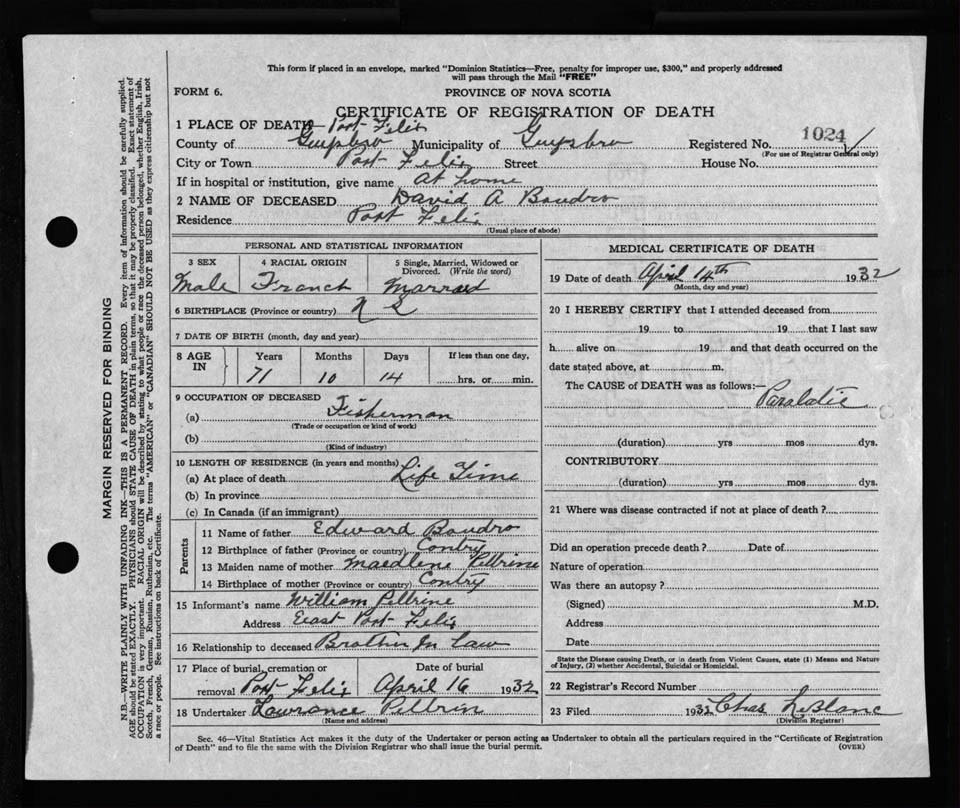 This form if placed in an envelope, marked "Dominion Statistics—Free, penalty for improper use, $300," and properly addressed
will pass through the Mail "FREE"
FORM 6.
PROVINCE OF NOVA SCOTIA
CERTIFICATE OF REGISTRATION OF DEATH
1 PLACE OF DEATH— Port Felix
County of Guysbro Municipality of Guysbro Registered No. 1024
(For use of Registrar General only)
City or Town Port Felix Street House No.
If in hospital or institution, give name at home
2 NAME OF DECEASED David A Boudro
Residence Port Felix
(Usual place of abode)
PERSONAL AND STATISTICAL INFORMATION
3 SEX 4 RACIAL ORIGIN 5 Single, Married, Widowed or Divorced. (Write the word)
Male French Married
6 BIRTHPLACE (Province or country) N S
7 DATE OF BIRTH (month, day and year)
8 AGE IN Years Months Days If less than one day,
71 10 14 hrs. or min.
9 OCCUPATION OF DECEASED
(a) Fisherman
(Trade or occupation or kind of work)
(b)
(Kind of industry)
10 LENGTH OF RESIDENCE (in years and months)
(a) At place of death Life Time
(b) In province
(c) In Canada (if an immigrant)
Parents
11 Name of father Edward Boudro
12 Birthplace of father (Province or country) Contry
13 Maiden name of mother Maedlene Pellrine
14 Birthplace of mother (Province or country) Contry
15 Informant's name William Pellrine
Address East Port Felix
16 Relationship to deceased Brother In Law
17 Place of burial, cremation or removal Port Felix Date of burial April 16 1932
18 Undertaker Lawrance Pellrin
(Name and address)
MEDICAL CERTIFICATE OF DEATH
19 Date of death April 14th 1932
(Month, day and year)
20 I HEREBY CERTIFY that I attended deceased from
19 to 19 that I last saw
h alive on 19 and that death occurred on the
date stated above, at m.
The CAUSE of DEATH was as follows:— Paralatic
(duration) yrs mos dys.
CONTRIBUTORY
(duration) yrs mos dys.
21 Where was disease contracted if not at place of death?
Did an operation precede death? Date of
Nature of operation
Was there an autopsy?
(Signed) M.D.
Address
Date
State the Disease causing Death, or in death from Violent Causes, state (1) Means and Nature
of Injury, (2) whether Accidental, Suicidal or Homicidal.
22 Registrar's Record Number
23 Filed 1932 Chas LeBlanc
(Division Registrar)
Sec. 46—Vital Statistics Act makes it the duty of the Undertaker or person acting as Undertaker to obtain all the particulars required in the "Certificate of Registration
of Death" and to file the same with the Division Registrar who shall issue the burial permit.
(OVER)
MARGIN RESERVED FOR BINDING
N.B.—WRITE PLAINLY WITH UNFADING INK—THIS IS A PERMANENT RECORD. Every item of information should be carefully supplied.
AGE should be stated EXACTLY. PHYSICIANS should STATE CAUSE OF DEATH in plain terms, so that it may be properly classified. Exact statement of
OCCUPATION is very important. RACIAL ORIGIN will be described by stating to what people or race the deceased person belonged, whether English, Irish,
Scotch, French, German, Russian, Ruthenian, etc. The terms "AMERICAN" or "CANADIAN" SHOULD NOT BE USED as they express citizenship but not
a race or people. See instructions on back of Certificate.